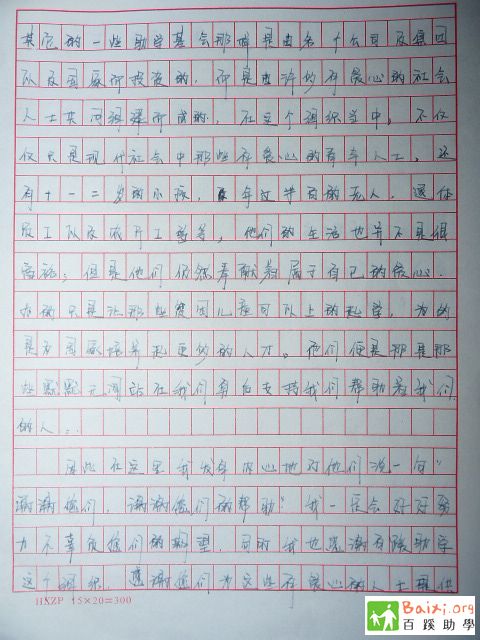 其他的一些助学基金会那样是由各个公司及集团
队及国家所投资的，而是由许多有爱心的社会
人士共同组织所成的，在这个组织当中，不仅
仅只是现代社会中那些有爱心的青年人士，还
有十一二岁的小孩，年过半百的老人，退休
职工以及农民工等等，他们的生活也并不是很
富裕；但是他们仍然奉献着属于自己的爱心，
为的只是让那些贫困儿童可以上的起学，为的
是为国家培养起更多的人才。他们便是那是那
些默默无闻站在我们身后支持我们帮助着我们
的人..
因此在这里我发自内心地对他们说一句“
谢谢您们，谢谢您们的帮助”我一定会好好努
力不辜负您们的期望，同时我也感谢有助学
这个组织，感谢您们为这些有爱心的人士提供
HXZP 15×20=300
Baixi.org
百蹊助學